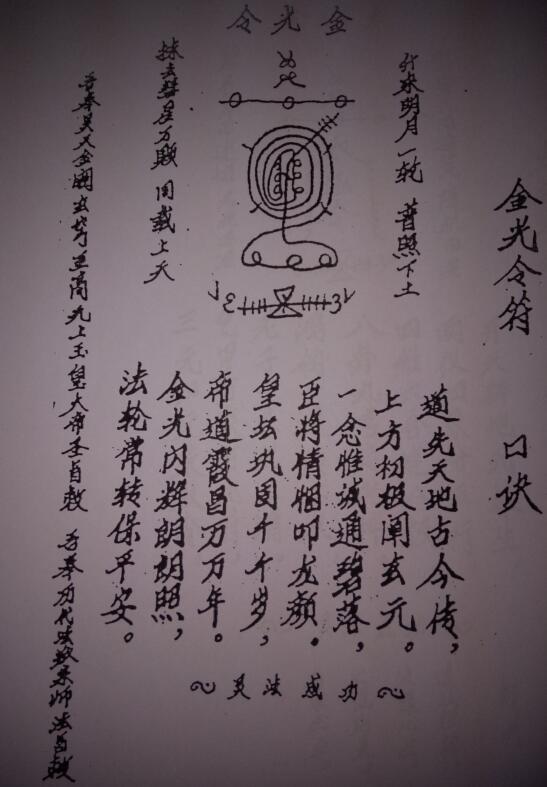 金光令符 口诀
金光令
来明月一轮 普照下土
抹去彗星万 同载上天
道先天地古今传，
上方初极阐玄元。
一念惟诚通碧落，
臣将精烟叩龙颜。
皇坛巩固千千岁，
帝道霞昌万万年。
金光闪辉朗朗照，
法轮常转保平安。
灵法成功
吾奉昊天金阙玄穹至高无上玉皇大帝圣旨敕 吾奉历代法教宗师法旨敕